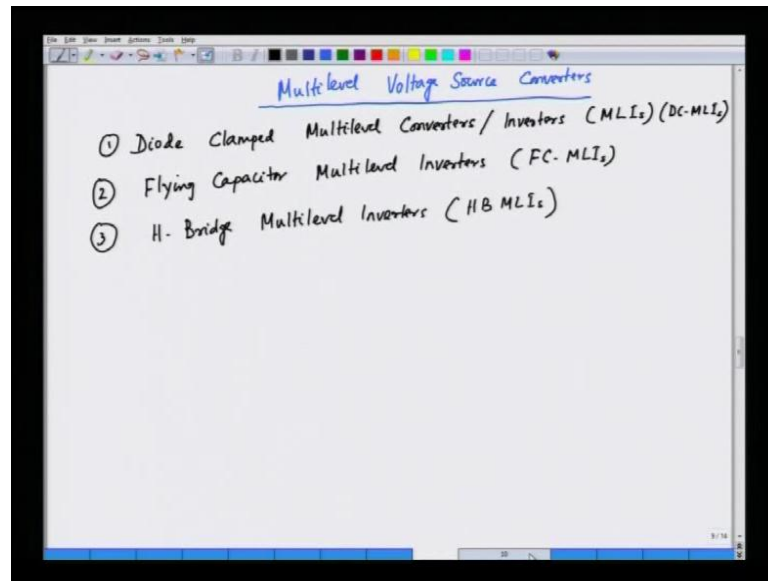 File Edit View Insert Actions Tools Help
Multilevel Voltage Source Converters
① Diode Clamped Multilevel Converters / Inverters (MLIs) (DC-MLIs)
② Flying Capacitor Multilevel Inverters (FC-MLIs)
③ H-Bridge Multilevel Inverters (HB MLIs)